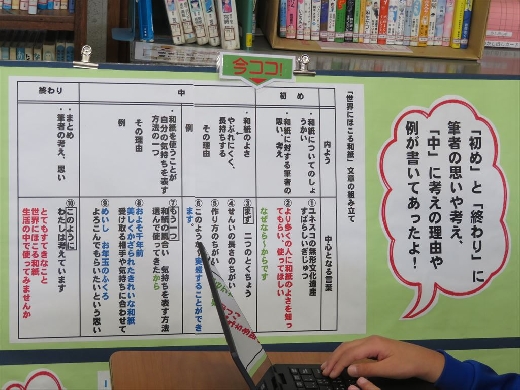 今ココ!
「初め」と「終わり」に
筆者の思いや考え、
「中」に考えの理由や
例が書いてあったよ!
「世界にほこる和紙」文章の組み立て
内よう
中心となる言葉
初め
・和紙についてのしょうかい
・和紙に対する筆者の思い、考え
①ユネスコの無形文化遺産
すばらしいぎじゅつ
②より多くの人に和紙のよさを知ってもらい、使ってほしい
なぜなら～からです
中
・和紙のよさ
やぶれにくく、
長持ちする
その理由
例
③まず 二つのとくちょう
④せんいの長さのちがい
⑤作り方のちがい
⑥このよう
することができ
ます。
・和紙を使うことが
自分の気持ちを表す
方法の一つ
その理由
例
⑦もう一つ
和紙の風合い 気持ちを表す方法
選んで使ってきたから
⑧およそ千年前
美しくかざられたきれいな和紙
受け取る相手や気持ちに合わせて
⑨めいし お年玉のふくろ
よろこんでもらいたいという思い
終わり
・まとめ
筆者の考え、思い
⑩このように
わたしは考えています
とてもすてきなこと
世界にほこる和紙
生活の中で使ってみませんか